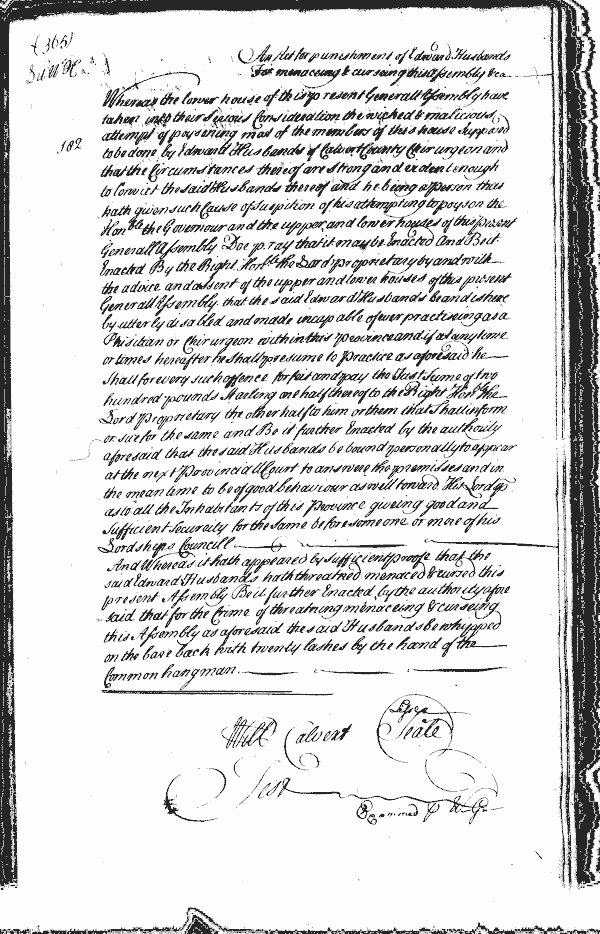 (365)
An Act for punishment of Edward Husbands
For menaceing & curseing this assembly &ca
Whereas the lower house of this present Generall Assembly have
taken into their serious Consideration the wicked & malicious
182
attempt of poysening most of the members of this house Supposed
to be done by Edward Husbands of Calvert County Chirurgeon and
that the Circumstances thereof are strong and evident enough
to Convict the said Husbands thereof and he being a person that
hath given such Cause of Suspition of his attempting to poyson the
Honble the Governour and the upper and lower houses of this present
Generall Assembly Doe pray that it may be Enacted And Be it
Enacted By the Right Honble the Lord proprietary by and with
the advice and assent of the upper and lower houses of this present
Generall Assembly that the said Edward Husbands be and is here
by utterly disabled and made incapable of ever practiseing as a
Phisitian or Chirurgeon within this Province and if at any time
or times hereafter he Shall presume to Practice as aforesaid he
Shall for every such offence forfeit and pay the Just Sume of two
hundred pounds Starling one half thereof to the Right Honble the
Lord Proprietary the other half to him or them that Shall inform
or sue for the same and Be it further Enacted by the authority
aforesaid that the said Husbands be bound personally to appear
at the next Provinciall Court to answere the premisses and in
the mean time to be of good behaviour as well toward His Lordsp
as to all the Inhabitants of this Province giveing good and
sufficient Security for the Same before some one or more of his
Lordships Councill
And Whereas it hath appeared by Sufficient proofe that the
said Edward Husbands hath threatned menaced & cursed this
present Assembly Be it further Enacted by the authority afore
said that for the Crime of threatning menaceing & curseing
this Assembly as aforesaid the said Husbands be whipped
on the bare back with twenty lashes by the hand of the
Common hangman
Will Calvert Seale
Test
Examined p